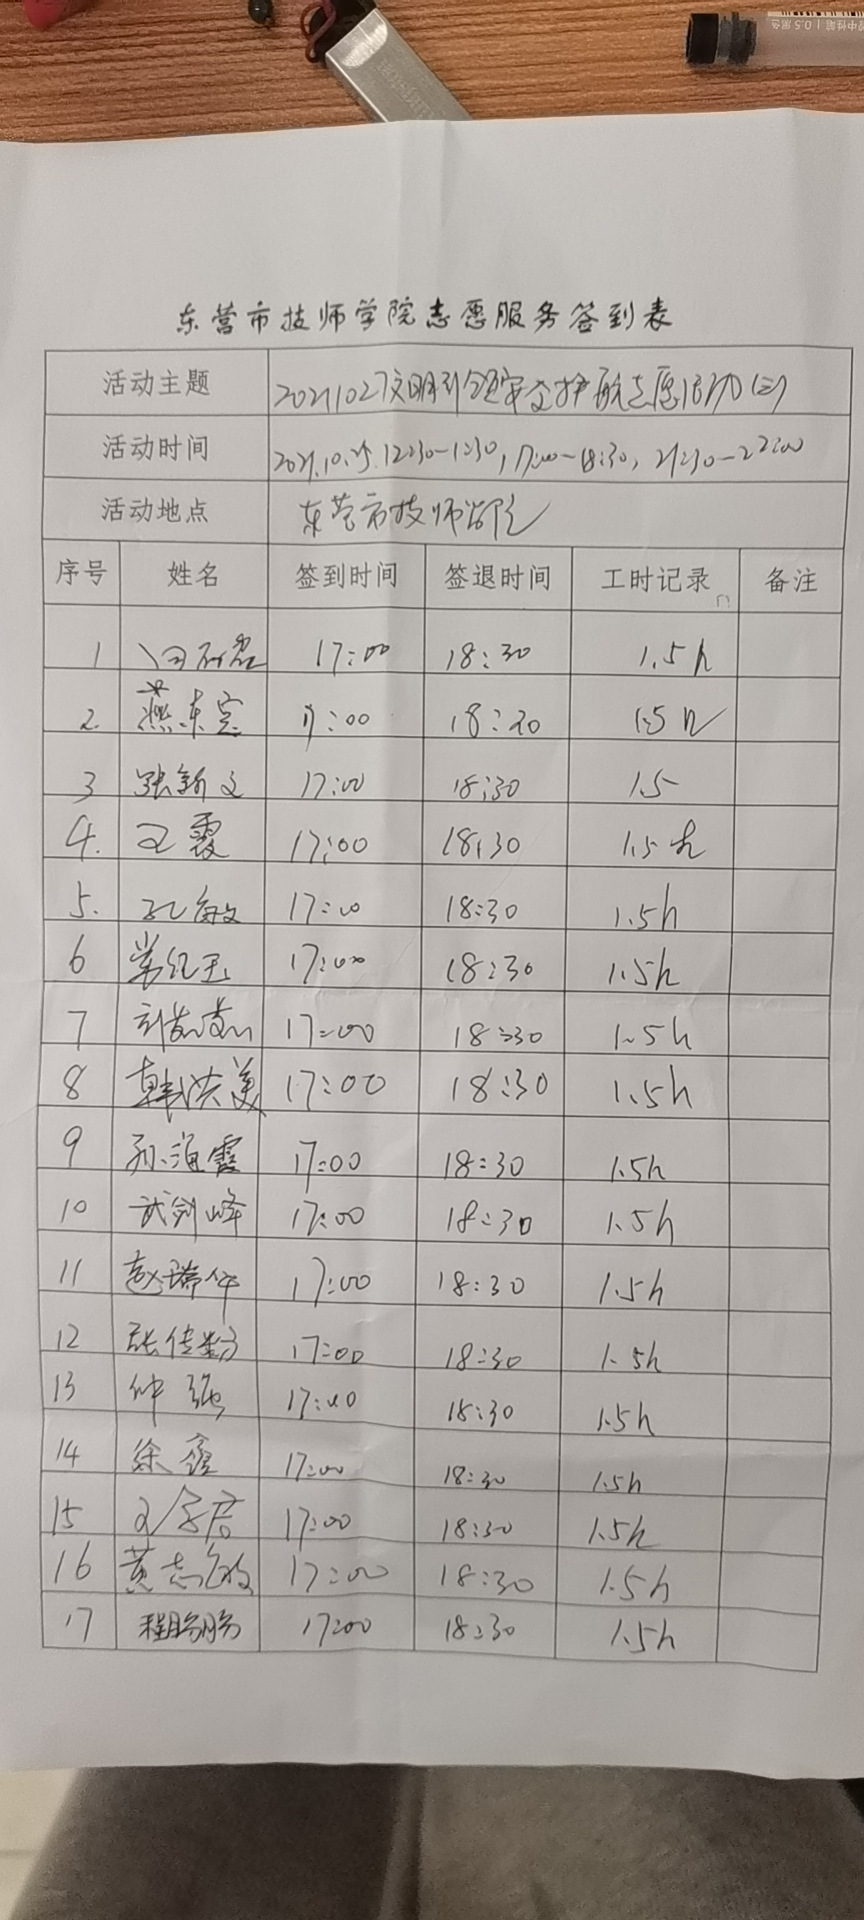 东营市技师学院志愿服务签到表
活动主题 20211027文明引领安全护航志愿活动(三)
活动时间 2021.10.25.12:30-1:30,17:00-18:30,21:30-22:00
活动地点 东营市技师学院
序号 姓名 签到时间 签退时间 工时记录 备注
1 17:00 18:30 1.5h
2. 燕东宝 17:00 18:30 1.5h
3 张新文 17:00 18:30 1.5
4. 王霞 17:00 18:30 1.5h
5. 孔敏 17:00 18:30 1.5h
6 常纪玉 17:00 18:30 1.5h
7 17:00 18:30 1.5h
8 韩洪美 17:00 18:30 1.5h
9 孙海霞 17:00 18:30 1.5h
10 武剑峰 17:00 18:30 1.5h
11 17:00 18:30 1.5h
12 17:00 18:30 1.5h
13 仲强 17:00 18:30 1.5h
14 徐鑫 17:00 18:30 1.5h
15 17:00 18:30 1.5h
16 黄志敏 17:00 18:30 1.5h
17 程肠肠 17:00 18:30 1.5h